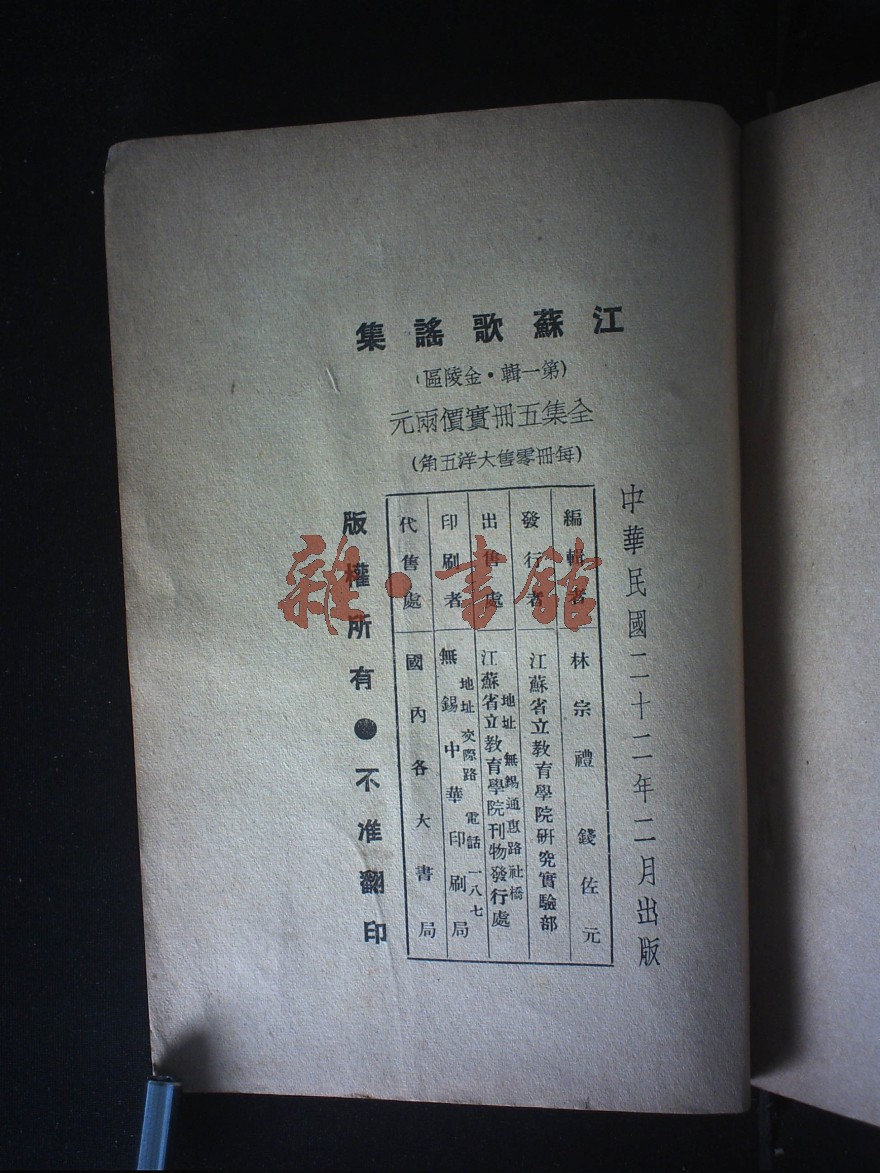 江蘇歌謠集
(第一輯·金陵區)
全集五冊實價兩元
(每冊零售大洋五角)
中華民國二十二年二月出版
編輯者 林宗禮 錢佐元
發行者 江蘇省立教育學院研究實驗部
地址 無錫通惠路社橋
出售處 江蘇省立教育學院刊物發行處
地址 交際路 電話 一八七
印刷者 無錫中華印刷局
代售處 國內各大書局
版權所有●不准翻印
雜·書館